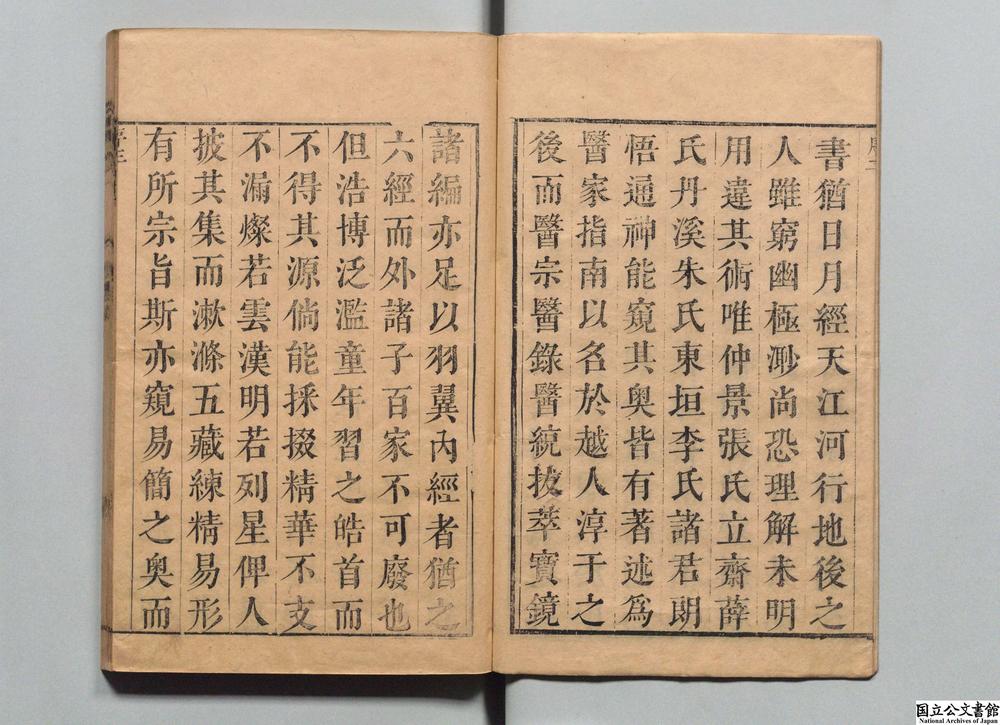 書猶日月經天江河行地後之
人雖窮幽極渺尚恐理解未明
用違其術唯仲景張氏立齋薛
氏丹溪朱氏東垣李氏諸君朗
悟通神能窺其奧皆有著述爲
醫家指南以名於越人淳于之
後而醫宗醫錄醫統拔萃寶鏡
諸編亦足以羽翼內經者猶之
六經而外諸子百家不可廢也
但浩博泛濫童年習之皓首而
不得其源倘能採掇精華不支
不漏燦若雲漢明若列星俾人
披其集而漱滌五藏練精易形
有所宗旨斯亦窺易簡之奧而
国立公文書館
National Archives of Japan